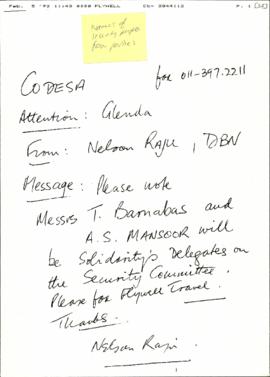 FEB. 5 '92 11:43 0000 FLYWELL
P. 1
names of
security people
from parties
CODESA
fax 011-397.2211
Attention: Glenda
From: Nelson RAJU, DBN
Message: Please note
Messrs T. Barnabas and
A.S. MANSOOR will
be Solidarity's Delegates on
the Security Committee.
Please fax Flywell Travel.
Thanks.
Nelson Raju.